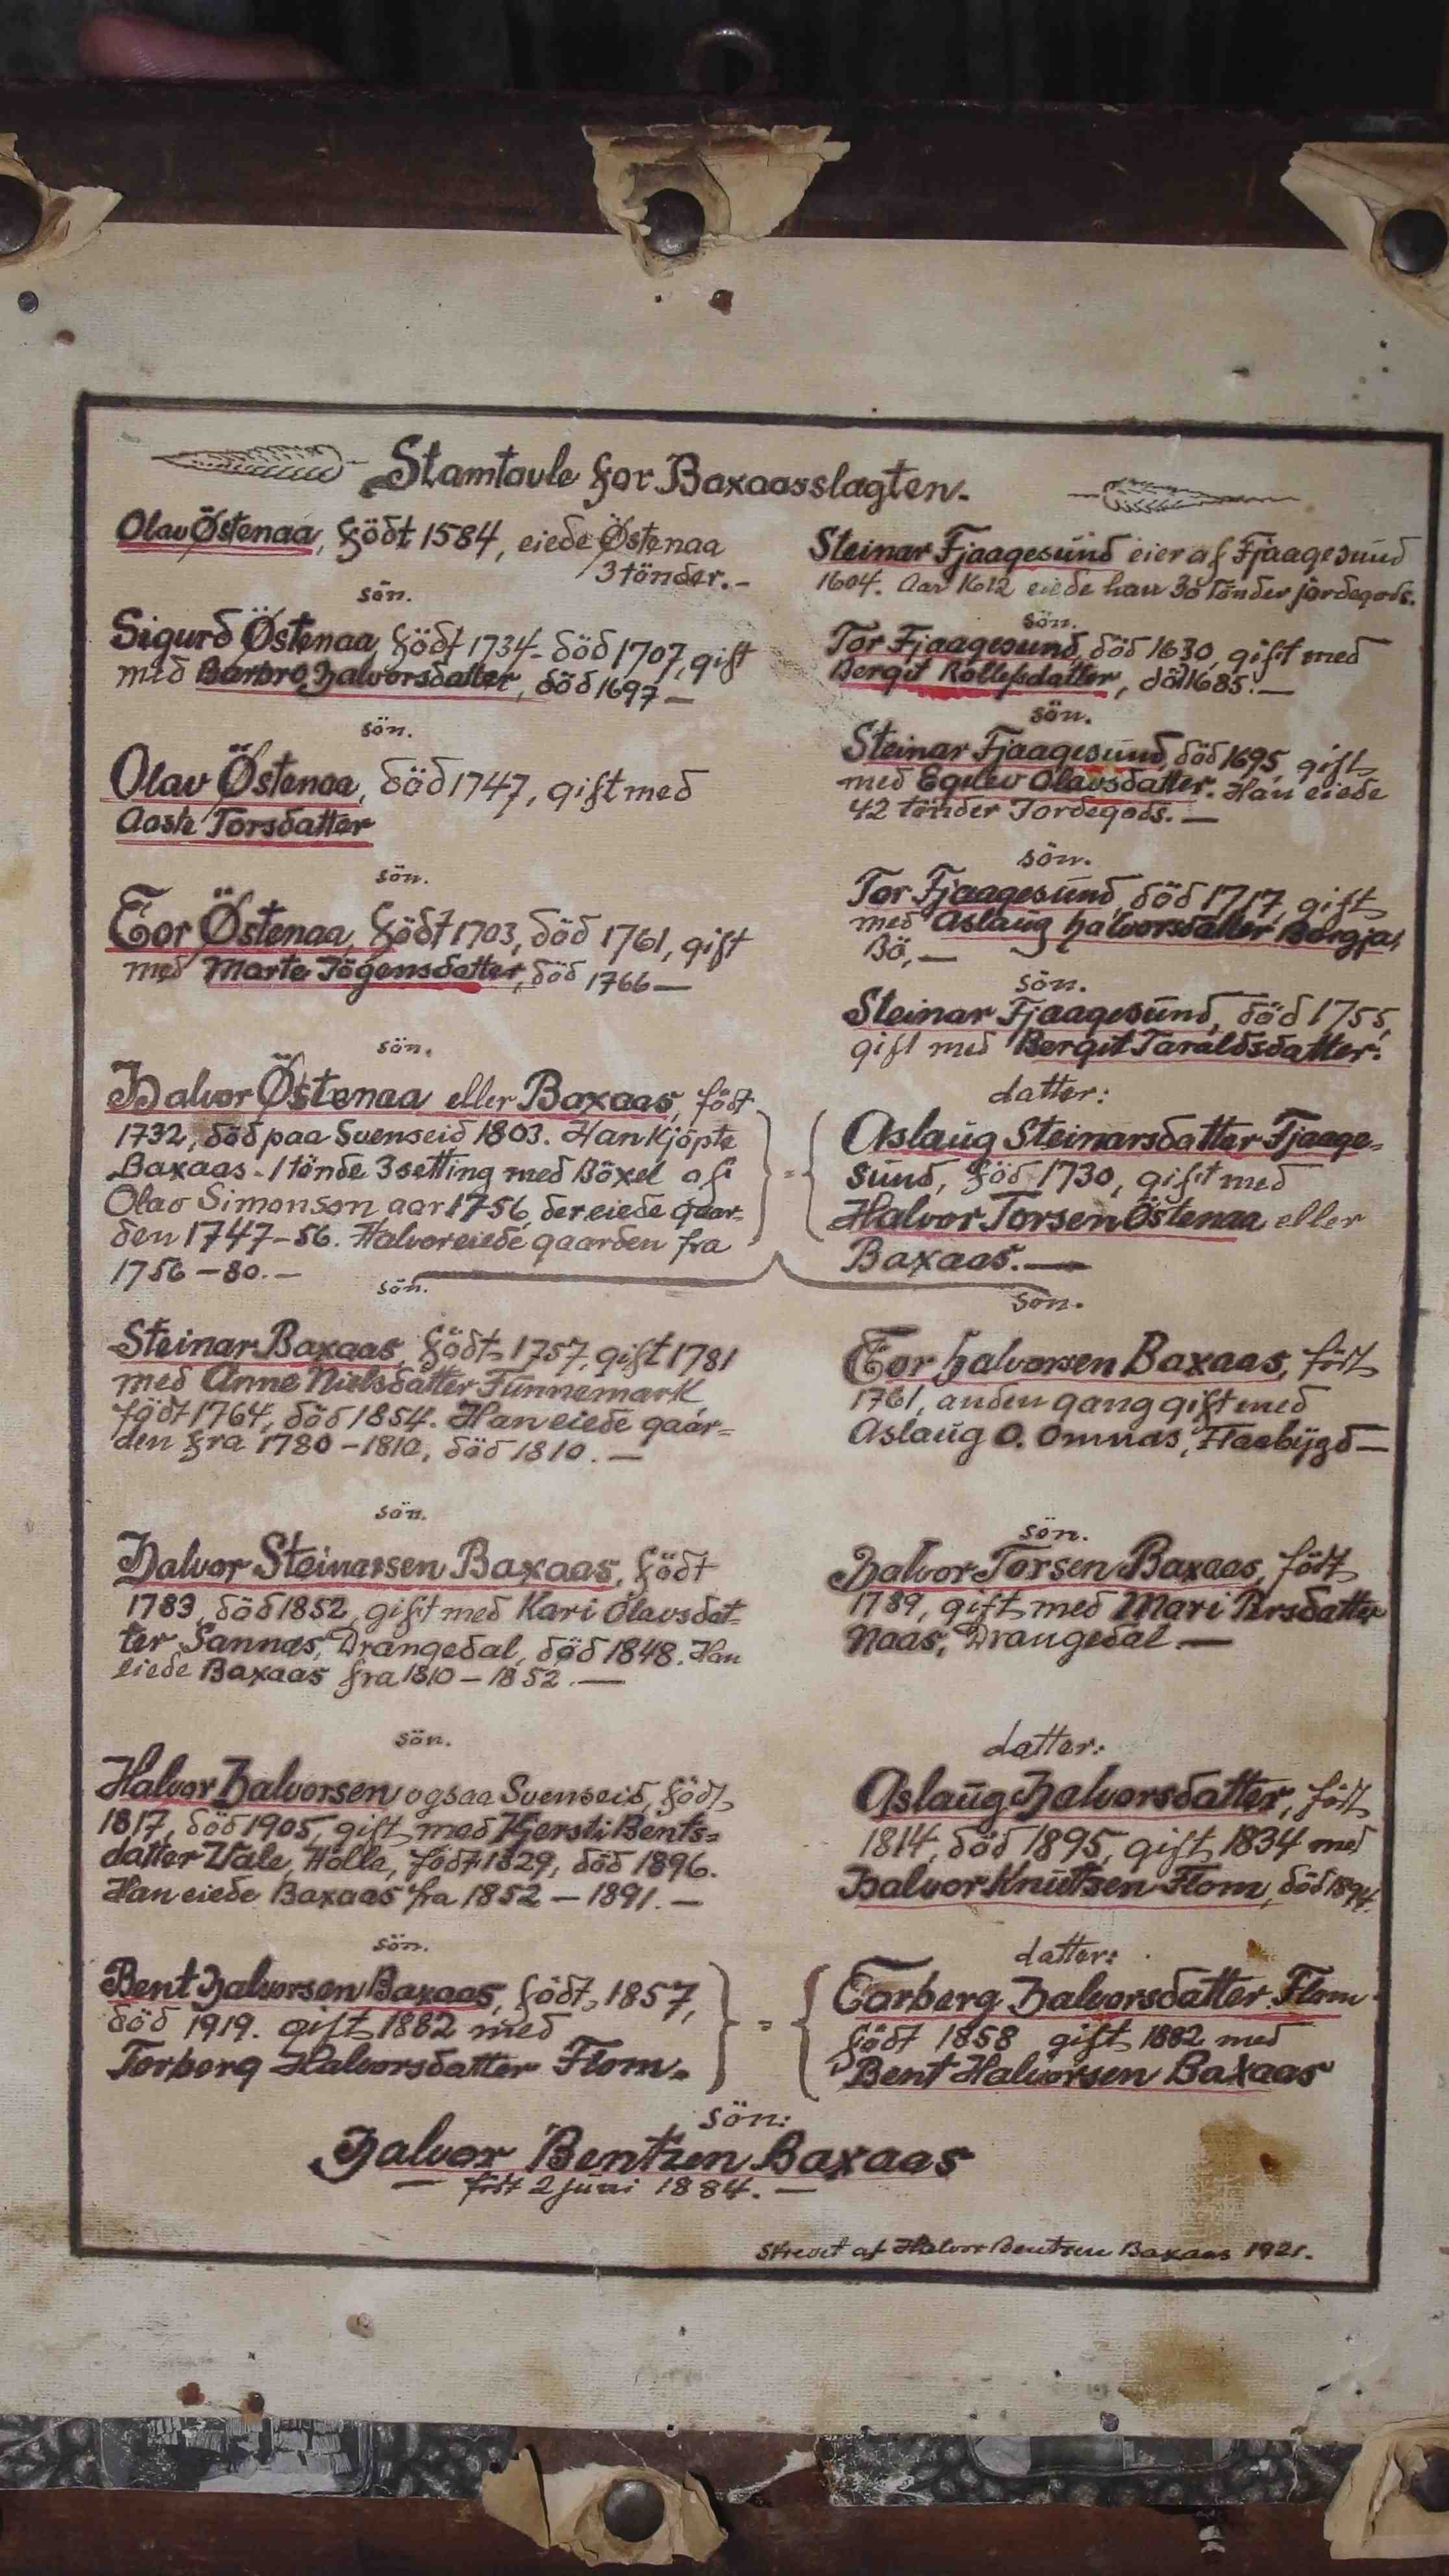 Stamtavle for Baxaasslagten.
Olav Östenaa, födt 1584, eiede Östenaa
3 tönder. -
sön.
Sigurd Östenaa, födt 1734 - död 1707, gift
med Barbro Halvorsdatter, död 1697 —
sön.
Olav Östenaa, död 1747, gift med
Aashe Torsdatter
sön.
Tor Östenaa, födt 1703, död 1761, gift
med Marte Jögensdatter, död 1766 —
sön.
Halvor Östenaa eller Baxaas, födt
1732, död paa Svenseid 1803. Han kjöpte
Baxaas - 1 tönde 3 setting med Böxel af
Olav Simonson aar 1756, der eiede gaar=
den 1747-56. Halvor eiede gaarden fra
1756-80. —
sön.
Steinar Baxaas, födt 1757, gift 1781
med Anne Nielsdatter Finnemark,
födt 1764, död 1854. Han eiede gaar=
den fra 1780-1810, död 1810. —
sön.
Halvor Steinarsen Baxaas, födt
1783, död 1852, gift med Kari Olavsdat=
ter Sannas, Drangedal, död 1848. Han
eiede Baxaas fra 1810 - 1852. —
sön.
Halvor Halvorsen ogsaa Svenseid, födt
1817, död 1905, gift med Kjersti Bents=
datter Vale, Holla, födt 1829, död 1896.
Han eiede Baxaas fra 1852 - 1891. -
sön.
Bent Halvorsen Baxaas, födt 1857,
död 1919. gift 1882 med
Torborg Halvorsdatter Flom.
Steinar Fjaagesund eier af Fjaagesund
1604. Aar 1612 eiede han 30 tönder jordegods.
sön.
Tor Fjaagesund, död 1630, gift med
Bergit Rollefsdatter, död 1685. —
sön.
Steinar Fjaagesund, död 1695, gift
med Egilev Olavsdatter. Han eiede
42 tönder Jordegods. —
sön.
Tor Fjaagesund, död 1717, gift
med Aslaug Halvorsdatter Borgja,
Bö, —
sön.
Steinar Fjaagesund, död 1755,
gift med Bergit Taraldsdatter.
datter:
Aslaug Steinarsdatter Fjaage=
sund, föd 1730, gift med
Halvor Torsen Östenaa eller
Baxaas. —
sön.
Tor Halvorsen Baxaas, födt
1761, anden gang gift med
Aslaug O. Omnas, Flaabygd —
sön.
Halvor Torsen Baxaas, födt
1789, gift med Mari Persdatter
Naas, Drangedal —
datter:
Aslaug Halvorsdatter, födt
1814, död 1895, gift 1834 med
Halvor Knutsen Flom, död 1894.
datter:
Torberg Halvorsdatter Flom
födt 1858 gift 1882 med
Bent Halvorsen Baxaas
sön:
Halvor Bentzen Baxaas
— födt 2 juni 1884. —
Skrevet af Halvor Bentzen Baxaas 1921.